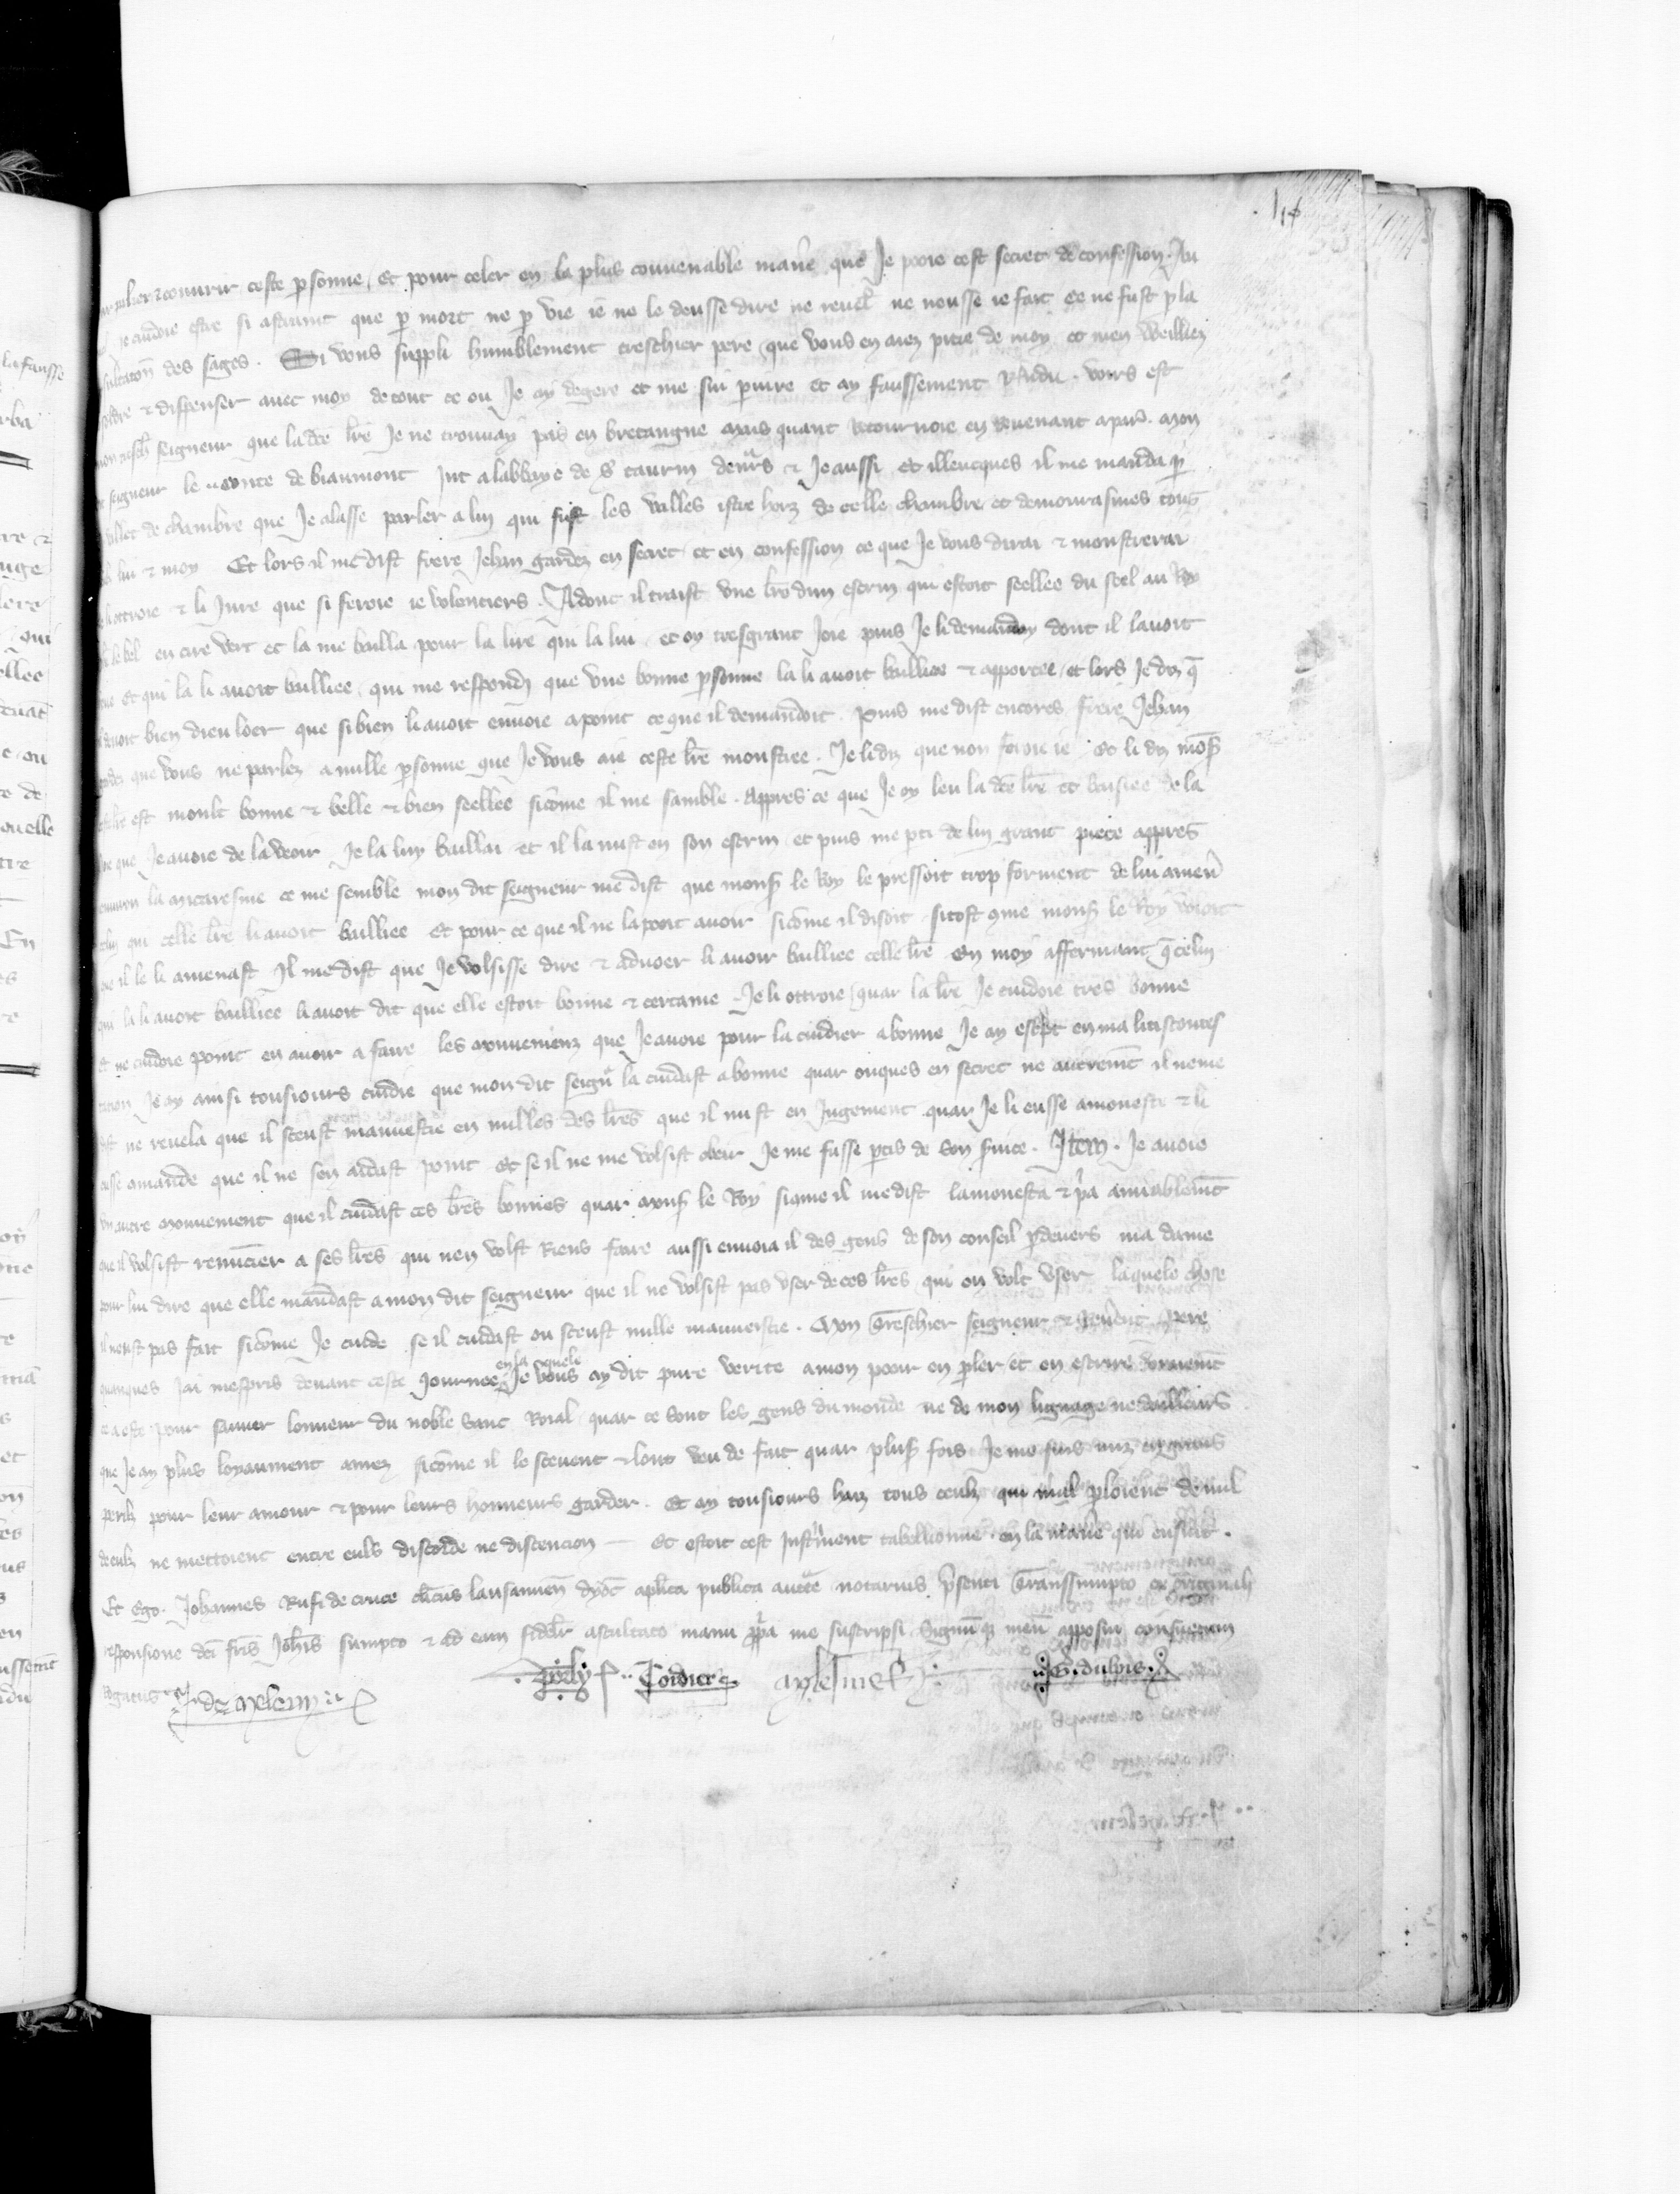 couvrir ceste psonne, et pour celer en la plus convenable maniere que Je pooie cest secret de confession. Au
je cuidoie estre si astraint que p mort ne p vie ie ne le deusse dire ne revel' ne neusse ie fait ce ne fust p la
des sages. Si vous suppli humblement treschier pere que vous en aiez pitie de moy et men Weilliez
& dispenser avec moy de tout ce ou Je ay degere et me sui piure et ay faussement . voirs est
seigneur que la dce lre Je ne trouvay pas en bretaingne mais quant Retournoie en venant a par'. Mon
seigneur le conte de biaumont Jut a labbaye de st taurin devrs & Je aussi et illeucques il me manda p
de chambre que Je alasse parler a luy qui fist les valles istre horz de celle chambre et demourasmes touz
lui & moy Et lors il me dist frere Jehan gardez en secret et en confession ce que Je vous dirai & monstrerai
ottroie & li Jure que si feroie ie volentiers. Adonc il traist une lre dun escrin qui estoit seellee du seel au Roy
le bel en cire vert et la me bailla pour la lire qui la lui et oy tresgrant Joie puis Je li demanday dont il lavoit
et qui la li avoit bailliee, qui me respondi que une bonne psonne la li avoit bailliee & apportee, et lors Je diz q
devoit bien dieu loer que si bien li avoit envoie a point ce que il demandoit. Puis me dist encores frere Jehan
que vous ne parlez a nulle psonne que Je vous aie ceste lre monstree. Je li diz que non feroie ie Et li diz mons
est moult bonne & belle & bien seellee sicome il me samble. Appres ce que Je oy leu la dce lre et baisiee de la
que Je avoie de la veoir Je la luy baillai et il la mist en son escrin et puis me pti de luy grant piece appres
la micaresme ce me semble mon dit seigneur me dist que mons le Roy le pressoit trop forment de lui amener
qui celle lre li avoit bailliee Et pour ce que il ne la pooit avoir sicome il disoit sitost come mons le Roy vouloit
il le li amenast Il me dist que Je volsisse dire & advoer li avoir bailliee celle lre En moy affermant q celuy
qui la li avoit bailliee li avoit dit que elle estoit bonne & certaine. Je li ottroie quar la lre Je cuidoie tres bonne
et ne cuidoie point en avoir a faire les mouvemenz que Je avoie pour la cuidier a bonne Je ay escript en ma
Je ay ainsi tousiours cuidie que mon dit seigr la cuidast a bonne quar onques en secret ne autremt il ne me
dist ne revela que il sceust mauvestie en nulles des lres que il mist en Jugement quar Je li eusse amoneste & li
eusse amande que il ne sen aidast point Et se il ne me volsist obeir Je me fusse ptis de son service. Item. Je avoie
un autre mouvement que il cuidast ces lres bonnes quar mons le Roy sicome il me dist lamonesta & pria amiablemt
que il volsist renuncier a ses lres qui nen volst Riens faire aussi envoia il des gens de son conseil pdevers ma dame
pour lui dire que elle mandast a mon dit seigneur que il ne volsist pas user de ces lres qui en volt user laquele chose
il neust pas fait sicome Je cuide se il cuidast ou sceust nulle mauvestie. Mon Treschier seigneur & Reverent Pere
quanques jai mespris devant ceste journee en la quele Je vous ay dit pure verite a mon pooir en pler et en escrire
ce a este pour sauver lonneur du noble sanc Roial quar ce sont les gens du monde ne de mon lignage ne dailleurs
que Je ay plus loyaument amez sicome il le scevent & lont veu de fait quar plus's fois Je me suis miz en granz
perilz pour leur amour & pour leurs honneurs garder. Et ay tousiours haiz tous ceulz qui mal ploient de nul
deulz ne mettoient entre euls discorde ne discencion — Et estoit cest Instrument tabellionne en la manie qui ensuit.
Et Ego. Johannes Rufi de cruce clicus lausannen dyoc aplica publica auctte notarius psenti Transsumpto ex originali
responsione dci fris Johis sumpto & ad eam fideliter ascultato manu ppa me suscripsi Signuq meu apposui consuetum
Rogatus